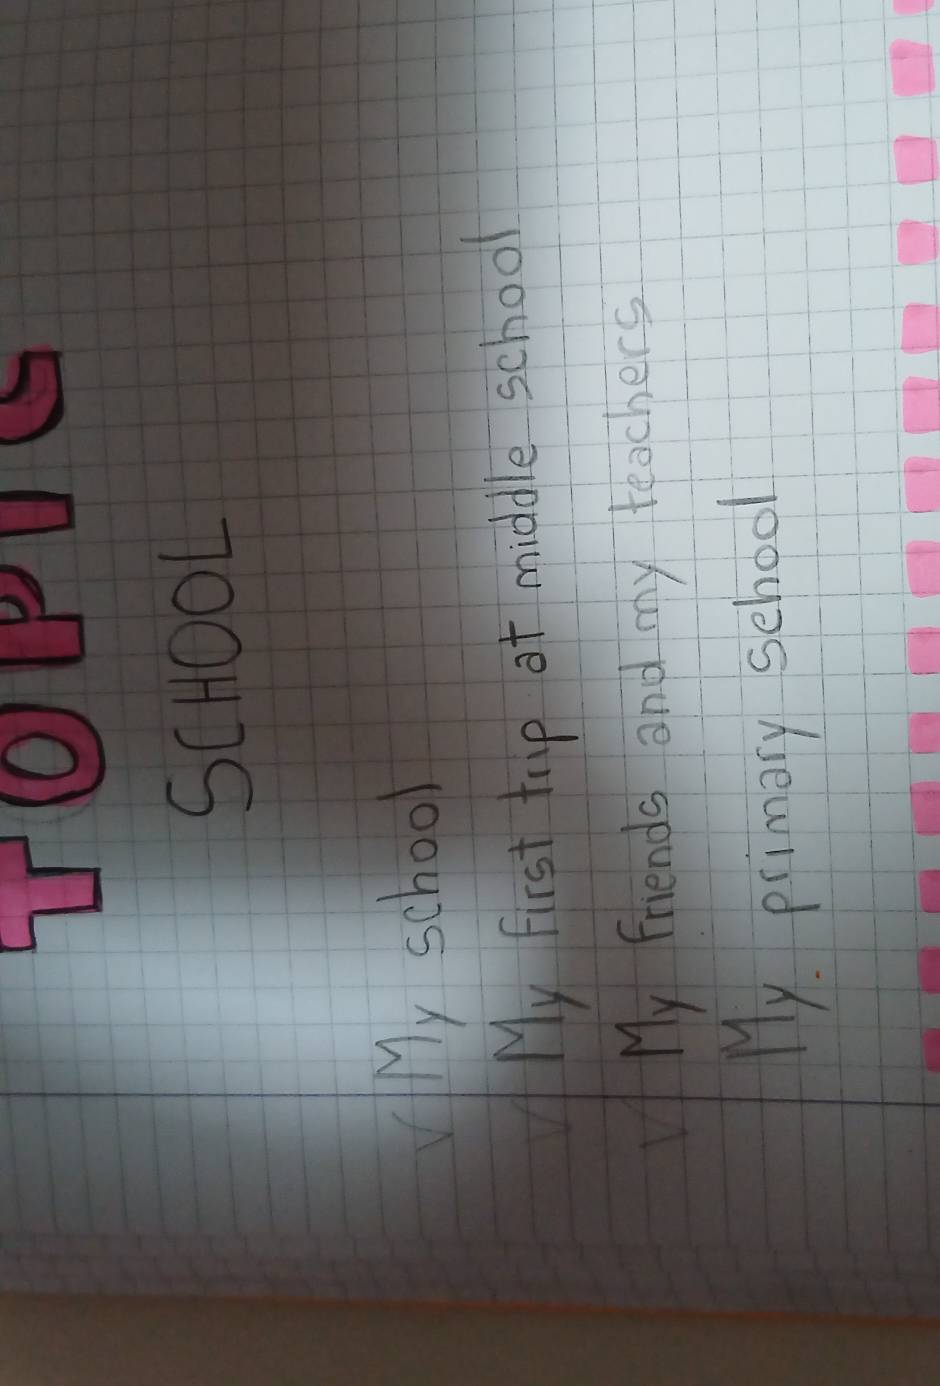 TOPIC
SCHOOL
V My school
V My first trip at middle school
V My friends and my teachers
My primary school